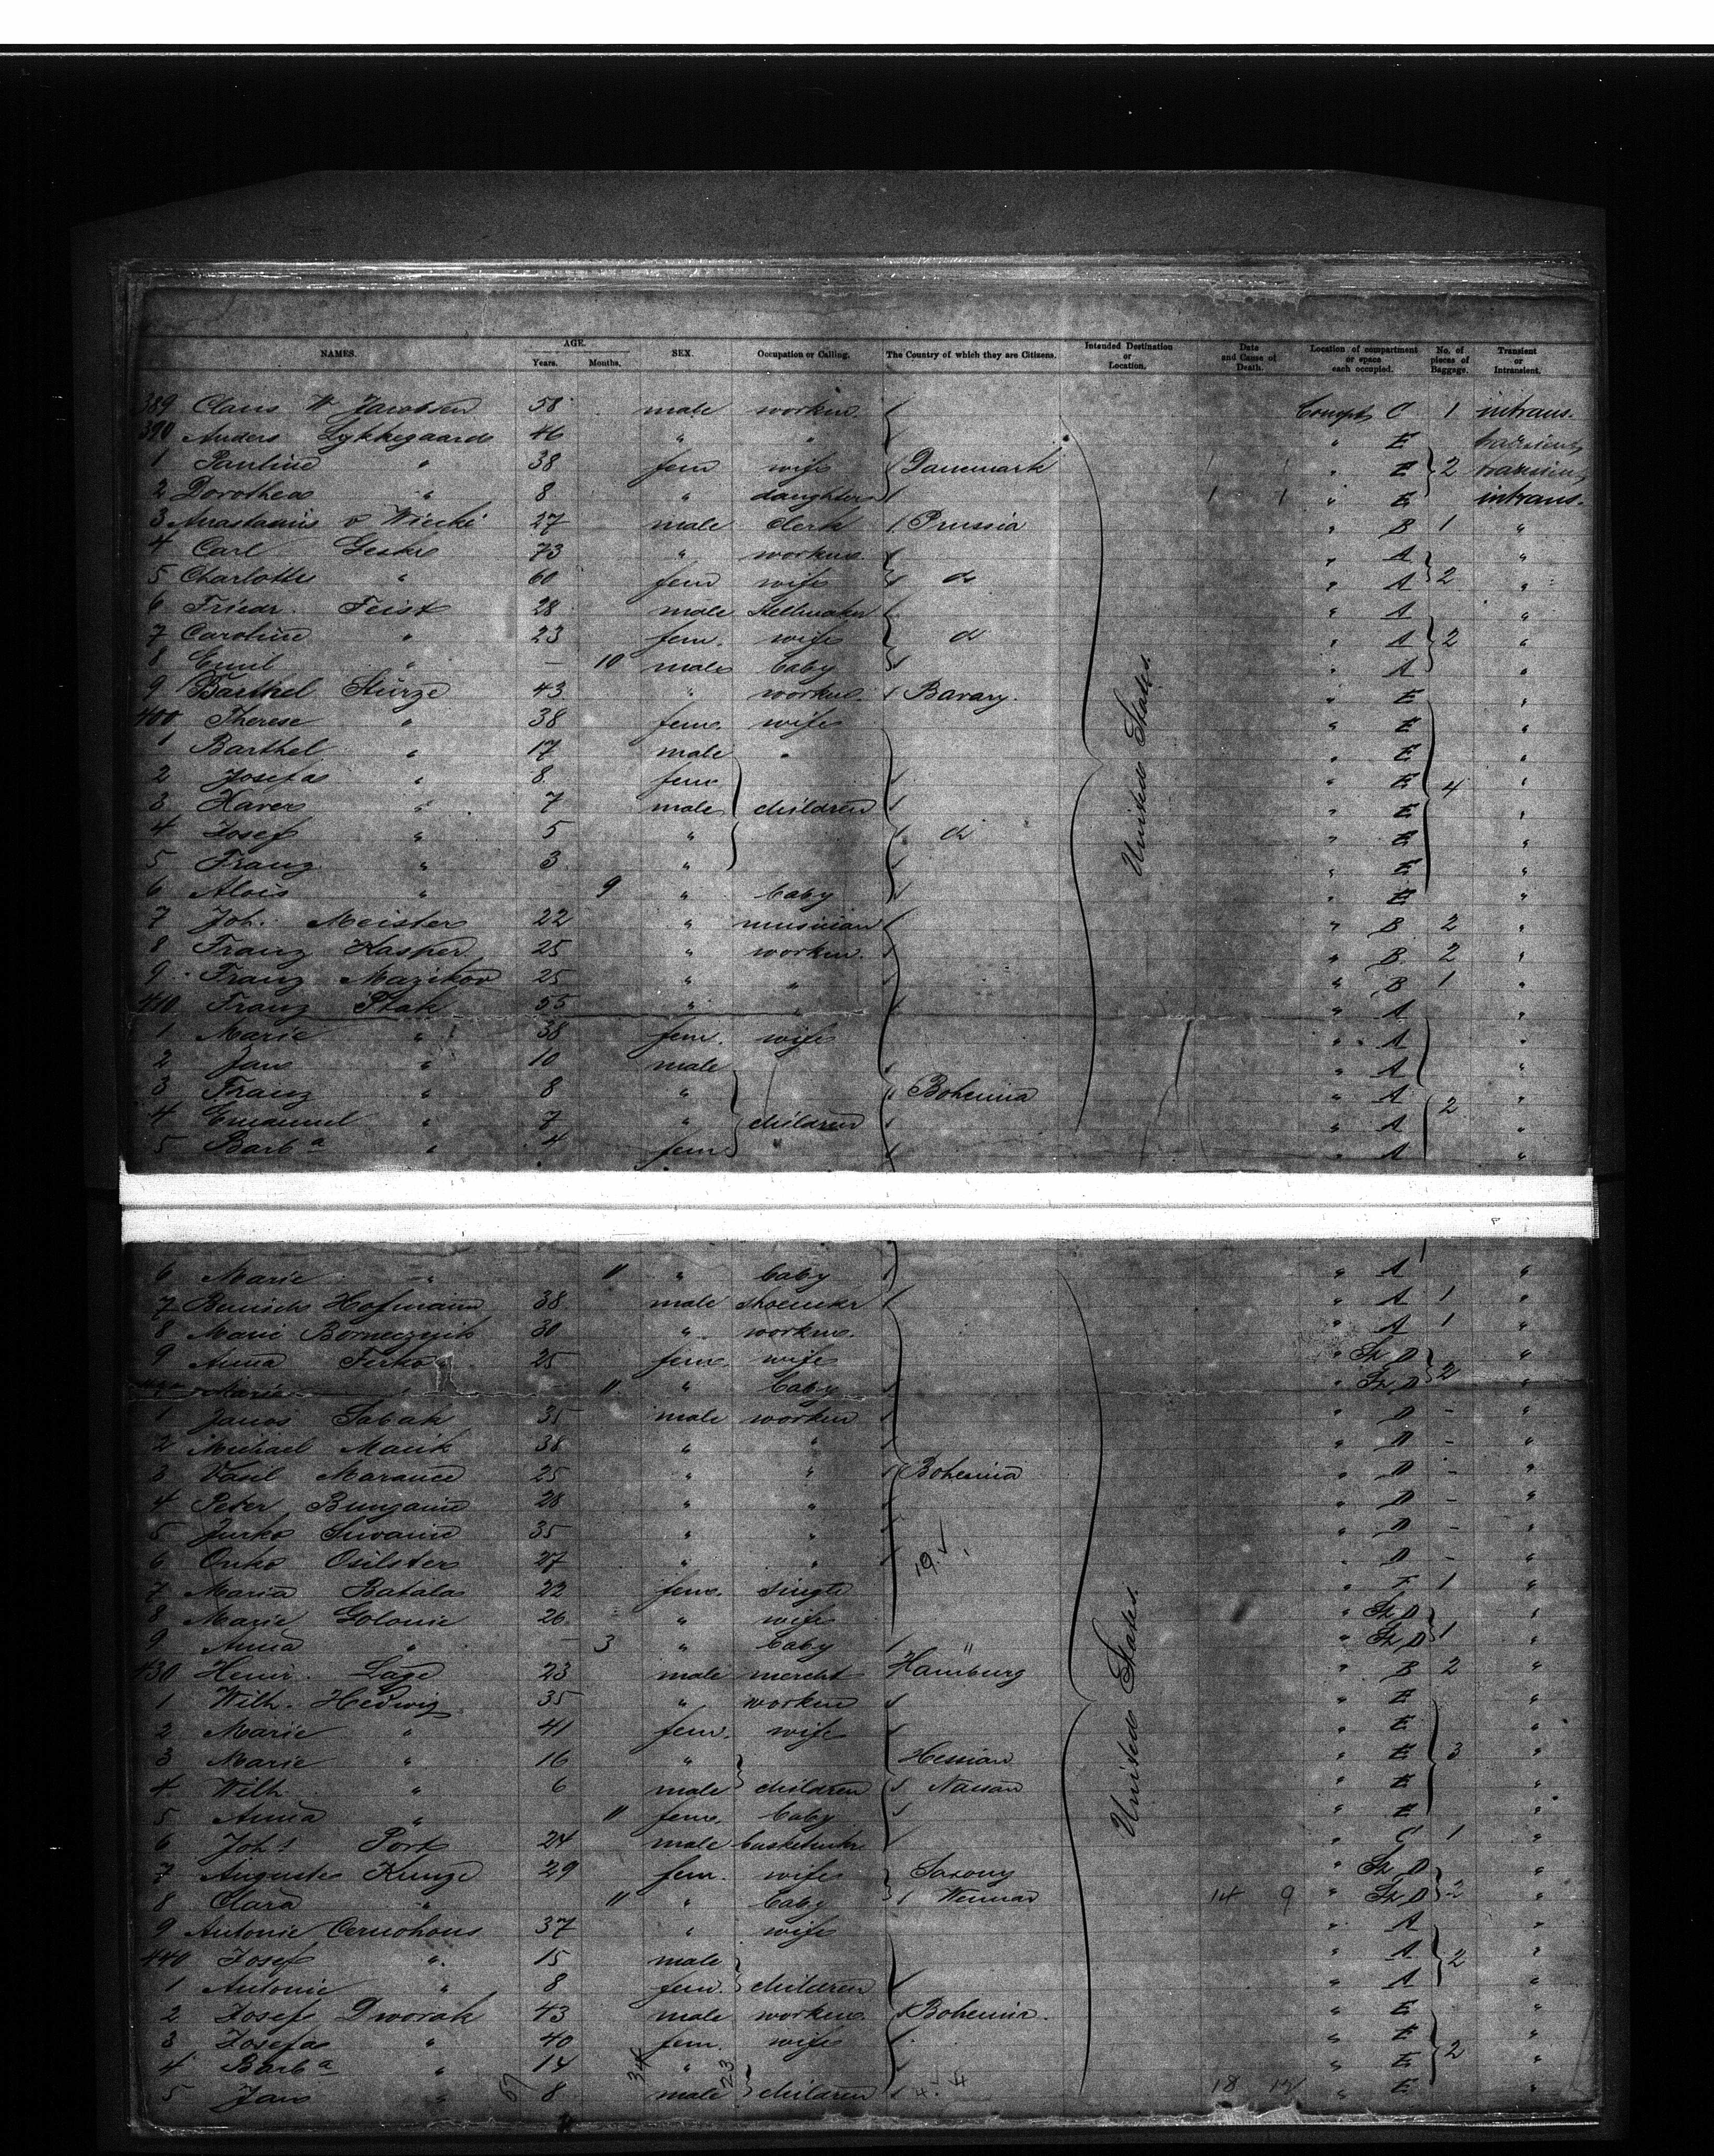 NAMES. AGE. Years. Months. SEX. Occupation or Calling. The Country of which they are Citizens. Intended Destination or Location. Date and Cause of Death. Location of compartment or space each occupied. No. of pieces of Baggage. Transient or Intransient.
389 Claus W Jacobsen 58 male workm C 1 intrans.
390 Anders Lykkegaard 46 " " " E transient
1 Pauline " 38 fem wife Danemark " E 2 transient
2 Dorothea " 8 " daughter " E intrans.
3 v Wiecki 27 male clerk Prussia " B 1 "
4 Carl Geske 73 " workm " A "
5 Charlotte " 60 fem wife do " A 2 "
6 Friedr. Feist 28 male Stellmaker " A "
7 Caroline " 23 fem. wife do " A 2 "
8 Emil " – 10 male baby " A "
9 Barthel Stürze 43 " workm. Bavary. " E "
400 Therese " 38 fem. wife " E "
1 Barthel " 17 male " " E "
2 Josefa " 8 fem " E 4 "
3 Xaver " 7 male children " E "
4 Josef " 5 " do " E "
5 Franz " 3 " " E "
6 Alois " 9 " baby " E "
7 Joh. Meister 22 " musician " B 2 "
8 Franz Kasper 25 " workm. " B 2 "
9 Franz Mazikov 25 " " " B 1 "
410 Franz Ptak 55 " " " A "
1 Marie " 38 fem. wife " A "
2 Jan " 10 male " A "
3 Franz " 8 " Bohemia " A "
4 Emanuel " 7 " children " A 2 "
5 Barba " 4 fem " " A "
United States.
6 Marie " 11 " baby " A "
7 Hofmann 38 male shoemkr " A 1 "
8 Marie 30 " workm. " A 1 "
9 Anna Ferko 25 fem. wife " St D "
Marie " 11 " baby " St D 2 "
1 Janos Sabak 35 male workm " D – "
2 Michael Macik 38 " " " D – "
3 Vasil 25 " " Bohemia " D – "
4 Peter 28 " " " D – "
5 Jurko 35 " " " D – "
6 27 " " 19 " D – "
7 Maria Batala 22 fem. single " F 1 "
8 Marie Golonic 26 " wife " St D "
9 Anna " – 3 " baby " " St D 1 "
430 Heinr. Lage 23 male mercht Hamburg " B 2 "
1 Wilh. Hedwig 35 " workm " E "
2 Marie " 41 fem. wife " E "
3 Marie " 16 " Hessian " E 3 "
4 Wilh " 6 male children Nassau " E "
5 Anna " 11 fem. baby " E "
6 Joh. Pork 24 male basketmkr " C 1 "
7 Auguste Kunze 29 fem. wife Saxony " St D "
8 Clara " 11 " baby Weimar 14 9 " St D 2 "
9 Antonie Cernohous 37 " wife " A "
440 Josef " 15 male " A 2 "
1 Antonie " 8 fem. children " A "
2 Josef Dworak 43 male workm. Bohemia. " E "
3 Josefa " 40 fem. wife " E "
4 Barba " 14 " " E 2 "
5 Jan " 8 male children 18 " E "
67 34 23 4 4
United States.